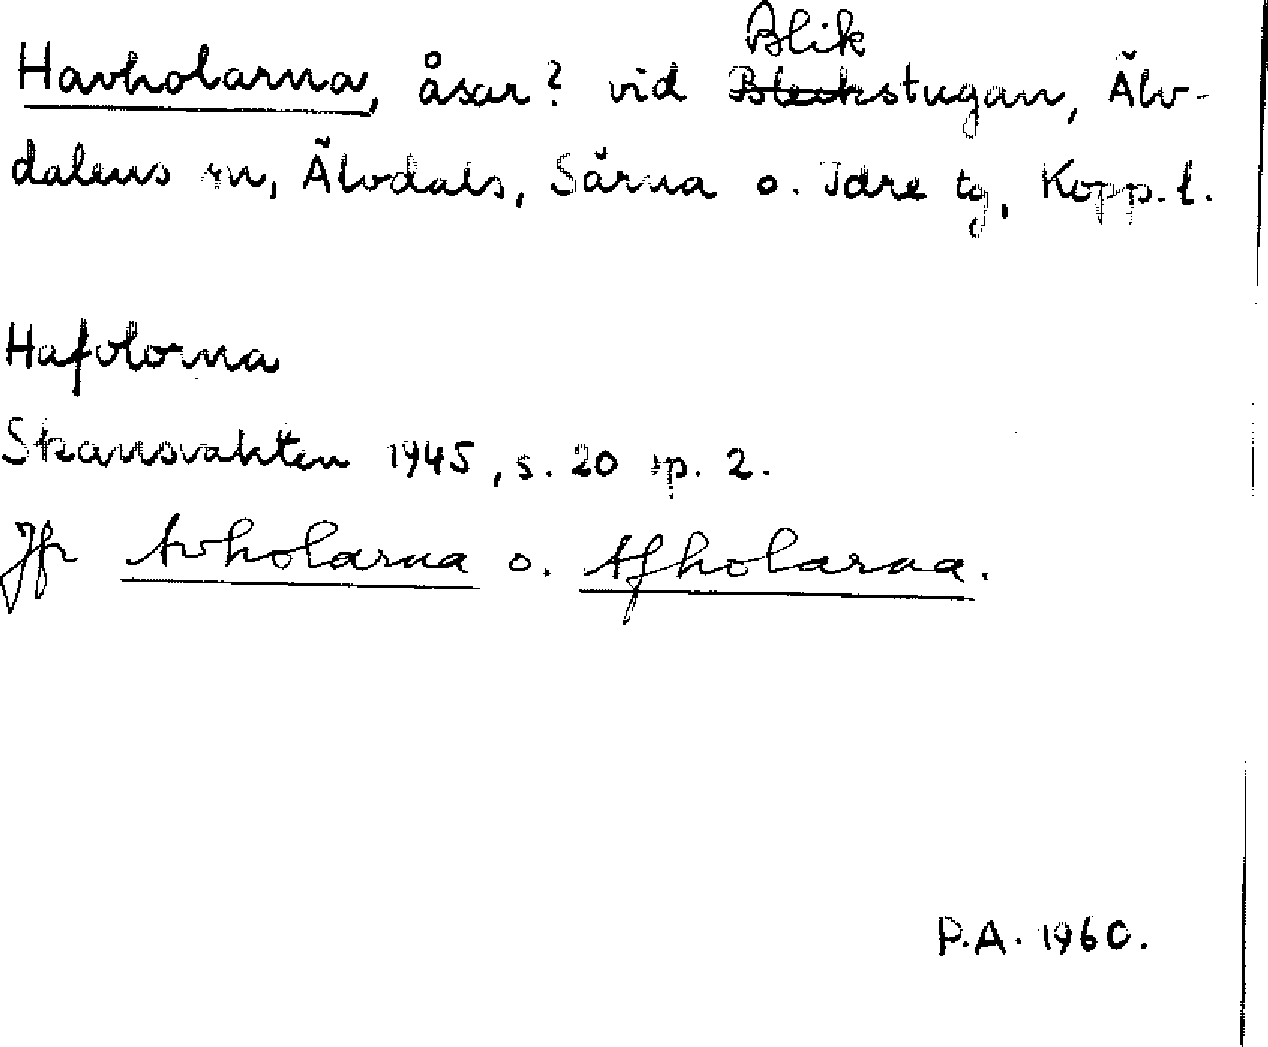 Blik
Havholarna, åsar? vid Bleckstugan, Älv-
dalens sn, Älvdals, Särna o. Idre tg, Kopp. l.
Hafolorna
Skansvakten 1945, s. 20 sp. 2.
Jfr Avholarna o. Afholarna.
P.A. 1960.